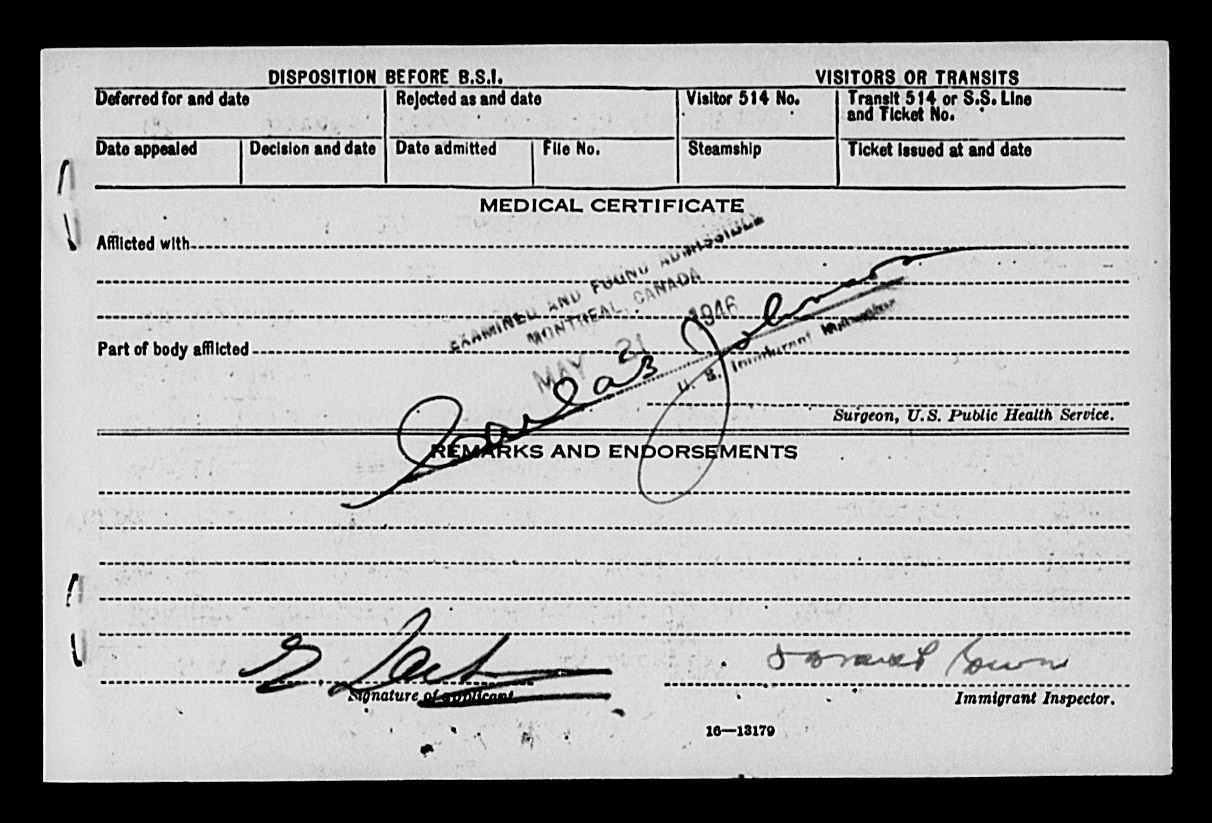 DISPOSITION BEFORE B.S.I. VISITORS OR TRANSITS
Deferred for and date Rejected as and date Visitor 514 No. Transit 514 or S.S. Line
and Ticket No.
Date appealed Decision and date Date admitted File No. Steamship Ticket issued at and date
MEDICAL CERTIFICATE
Afflicted with
EXAMINED AND FOUND ADMISSIBLE
MONTREAL, CANADA
MAY 21 1946
Part of body afflicted
U. S. Immigrant Inspector
Surgeon, U.S. Public Health Service.
REMARKS AND ENDORSEMENTS
Signature of applicant
Immigrant Inspector.
16—13179